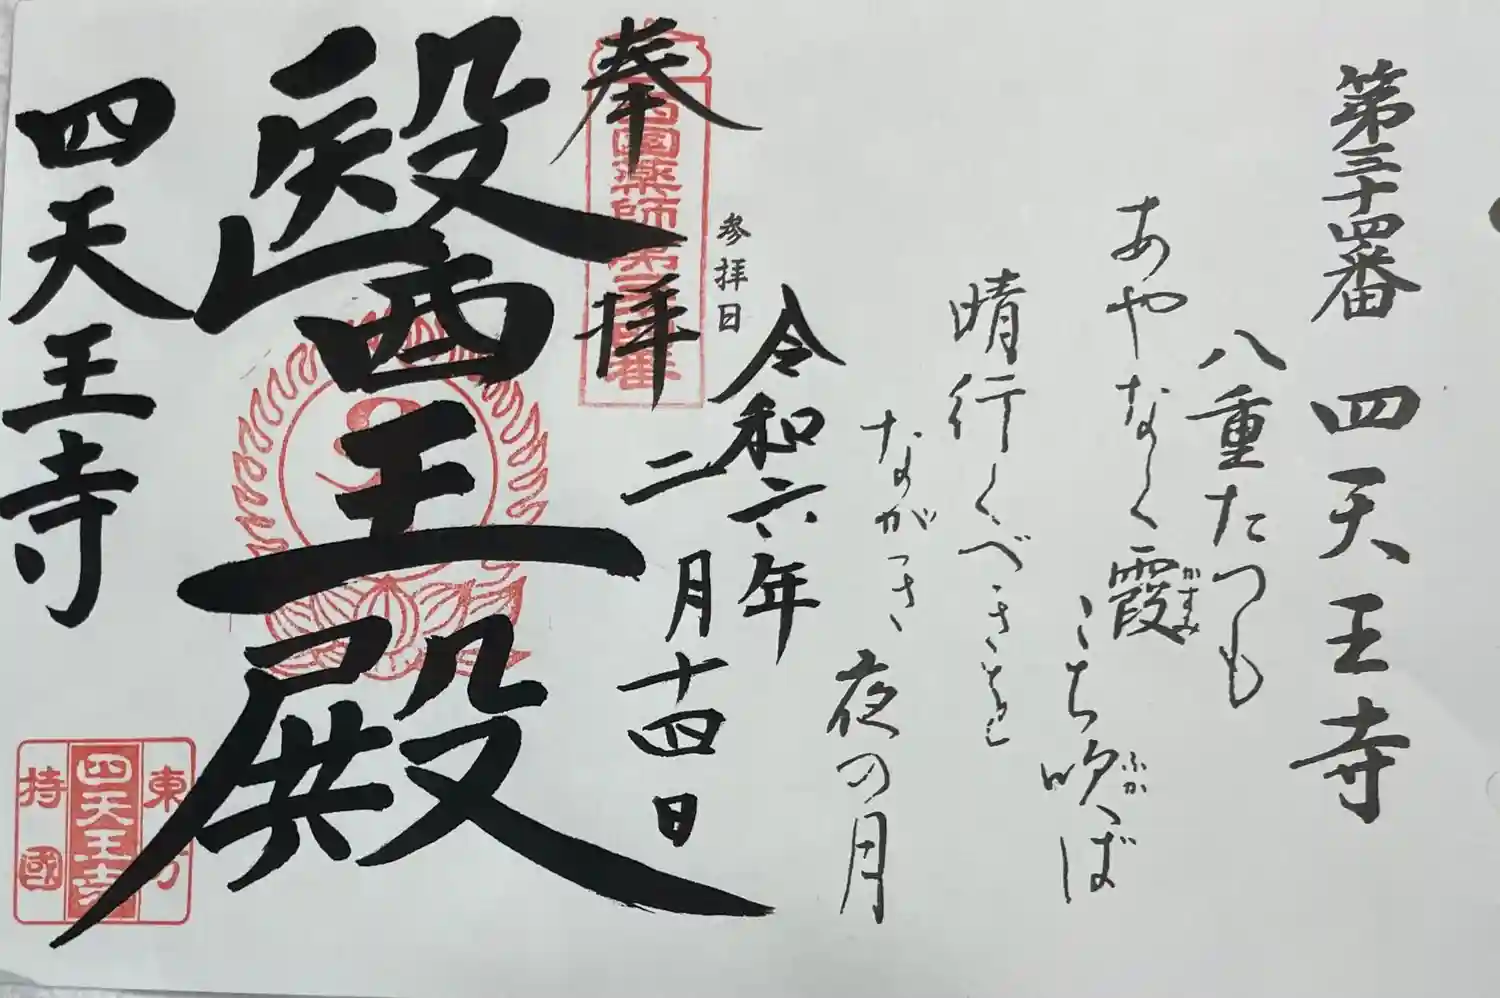 第三十四番 四天王寺
八重たつも
あやなく霞
かすみ
こち吹ば
ふか
晴行くべき
夜の月
参拝日
令和六年
二月十四日
奉拝
西國薬師第三十四番
醫王殿
四天王寺
東方
四天王寺
持國